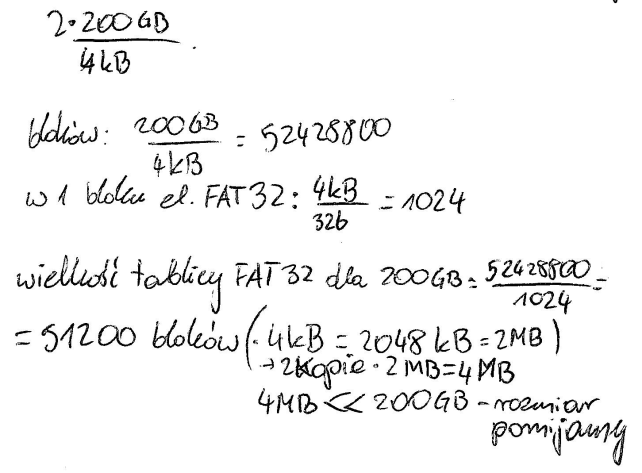 2·200GB
4kB
bloków: 200GB = 52428800
4kB
w 1 bloku el. FAT32: 4kB = 1024
32b
wielkość tablicy FAT32 dla 200GB = 52428800 =
1024
= 51200 bloków (·4kB = 2048kB = 2MB)
→ 2 kopie · 2MB = 4MB
4MB << 200GB - rozmiar
pomijamy